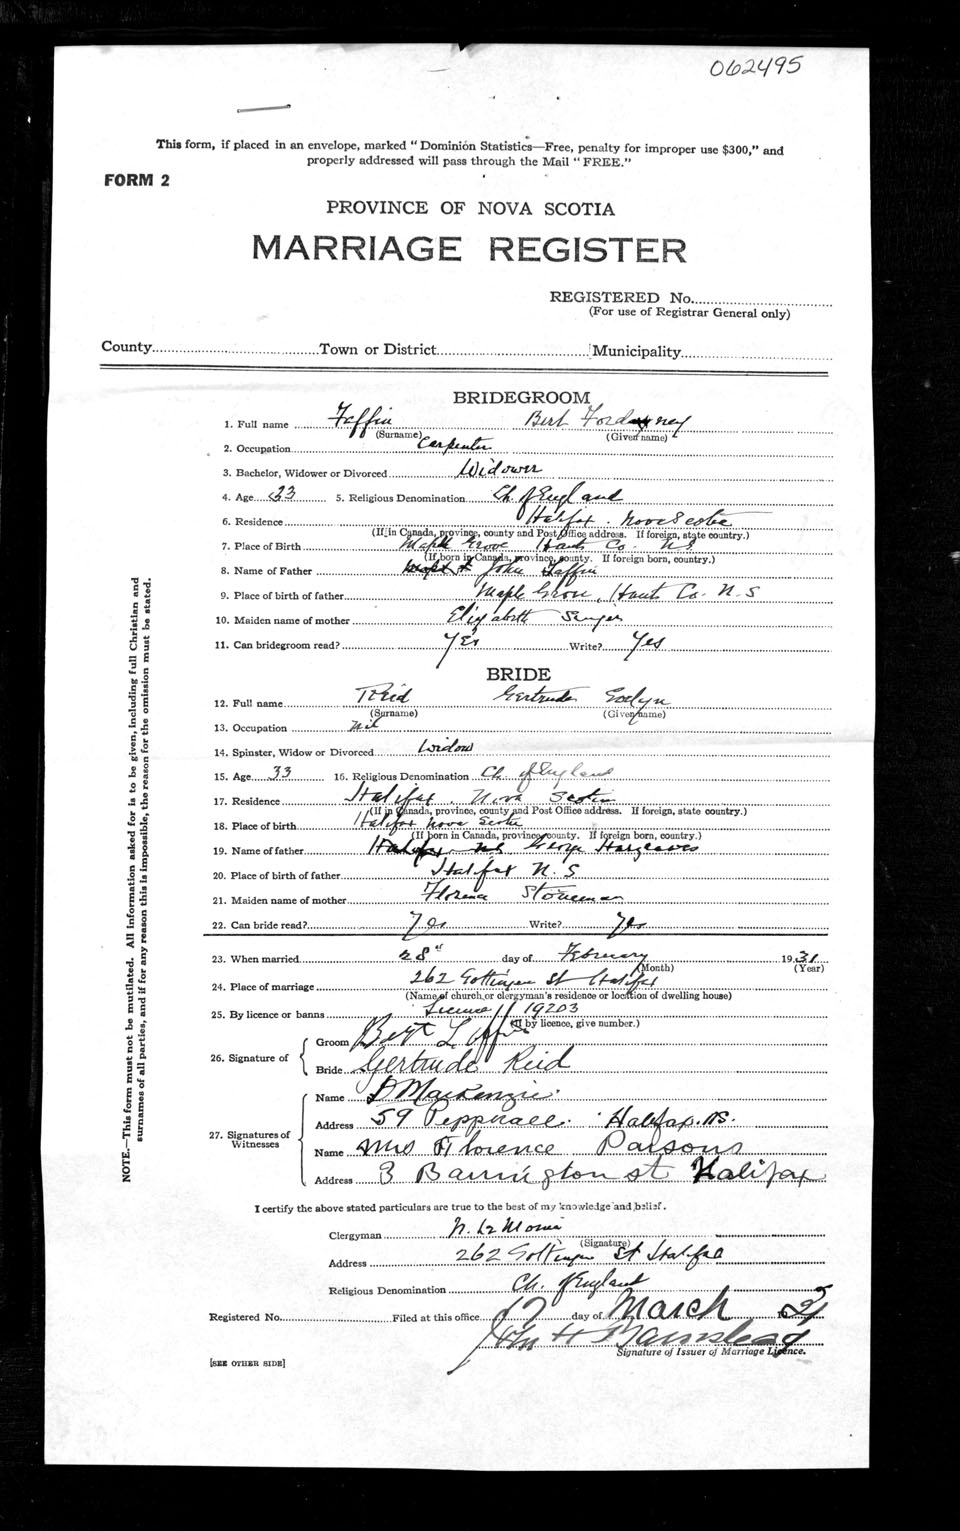 062495
This form, if placed in an envelope, marked "Dominion Statistics—Free, penalty for improper use $300," and
properly addressed will pass through the Mail "FREE."
FORM 2
PROVINCE OF NOVA SCOTIA
MARRIAGE REGISTER
REGISTERED No.
(For use of Registrar General only)
County Town or District Municipality
BRIDEGROOM
1. Full name Laffin Bert
(Surname) (Given name)
2. Occupation Carpenter
3. Bachelor, Widower or Divorced Widower
4. Age 33 5. Religious Denomination Ch. of England
6. Residence Halifax. Nova Scotia
(If in Canada, province, county and Post Office address. If foreign, state country.)
7. Place of Birth Maple Grove Hants Co. N.S
(If born in Canada, province, county. If foreign born, country.)
8. Name of Father John Laffin
9. Place of birth of father Maple Grove, Hants Co. N.S
10. Maiden name of mother Elizabeth
11. Can bridegroom read? Yes Write? Yes
BRIDE
12. Full name Reid Gertrude Evelyn
(Surname) (Given name)
13. Occupation nil
14. Spinster, Widow or Divorced Widow
15. Age 33 16. Religious Denomination Ch of England
17. Residence Halifax. Nova Scotia
(If in Canada, province, county and Post Office address. If foreign, state country.)
18. Place of birth Halifax Nova Scotia
(If born in Canada, province, county. If foreign born, country.)
19. Name of father George Hargreaves
20. Place of birth of father Halifax N.S
21. Maiden name of mother Florence Stoneman
22. Can bride read? Yes Write? Yes
23. When married 28 day of February 1931
(Month) (Year)
24. Place of marriage 262 Gottingen St Halifax
(Name of church, or clergyman's residence or location of dwelling house)
25. By licence or banns Licence 19203
(If by licence, give number.)
26. Signature of
Groom Bert Laffin
Bride Gertrude Reid
27. Signatures of Witnesses
Name D MacKenzie
Address 59 Pepperell. Halifax. N.S.
Name Mrs Florence Parsons
Address 3 Barrington St Halifax
I certify the above stated particulars are true to the best of my knowledge and belief.
Clergyman
(Signature)
Address 262 Gottingen St Halifax
Religious Denomination Ch. of England
Registered No. Filed at this office day of March
Signature of Issuer of Marriage Licence.
[SEE OTHER SIDE]
NOTE.—This form must not be mutilated. All information asked for is to be given, including full Christian and
surnames of all parties, and if for any reason this is impossible, the reason for the omission must be stated.